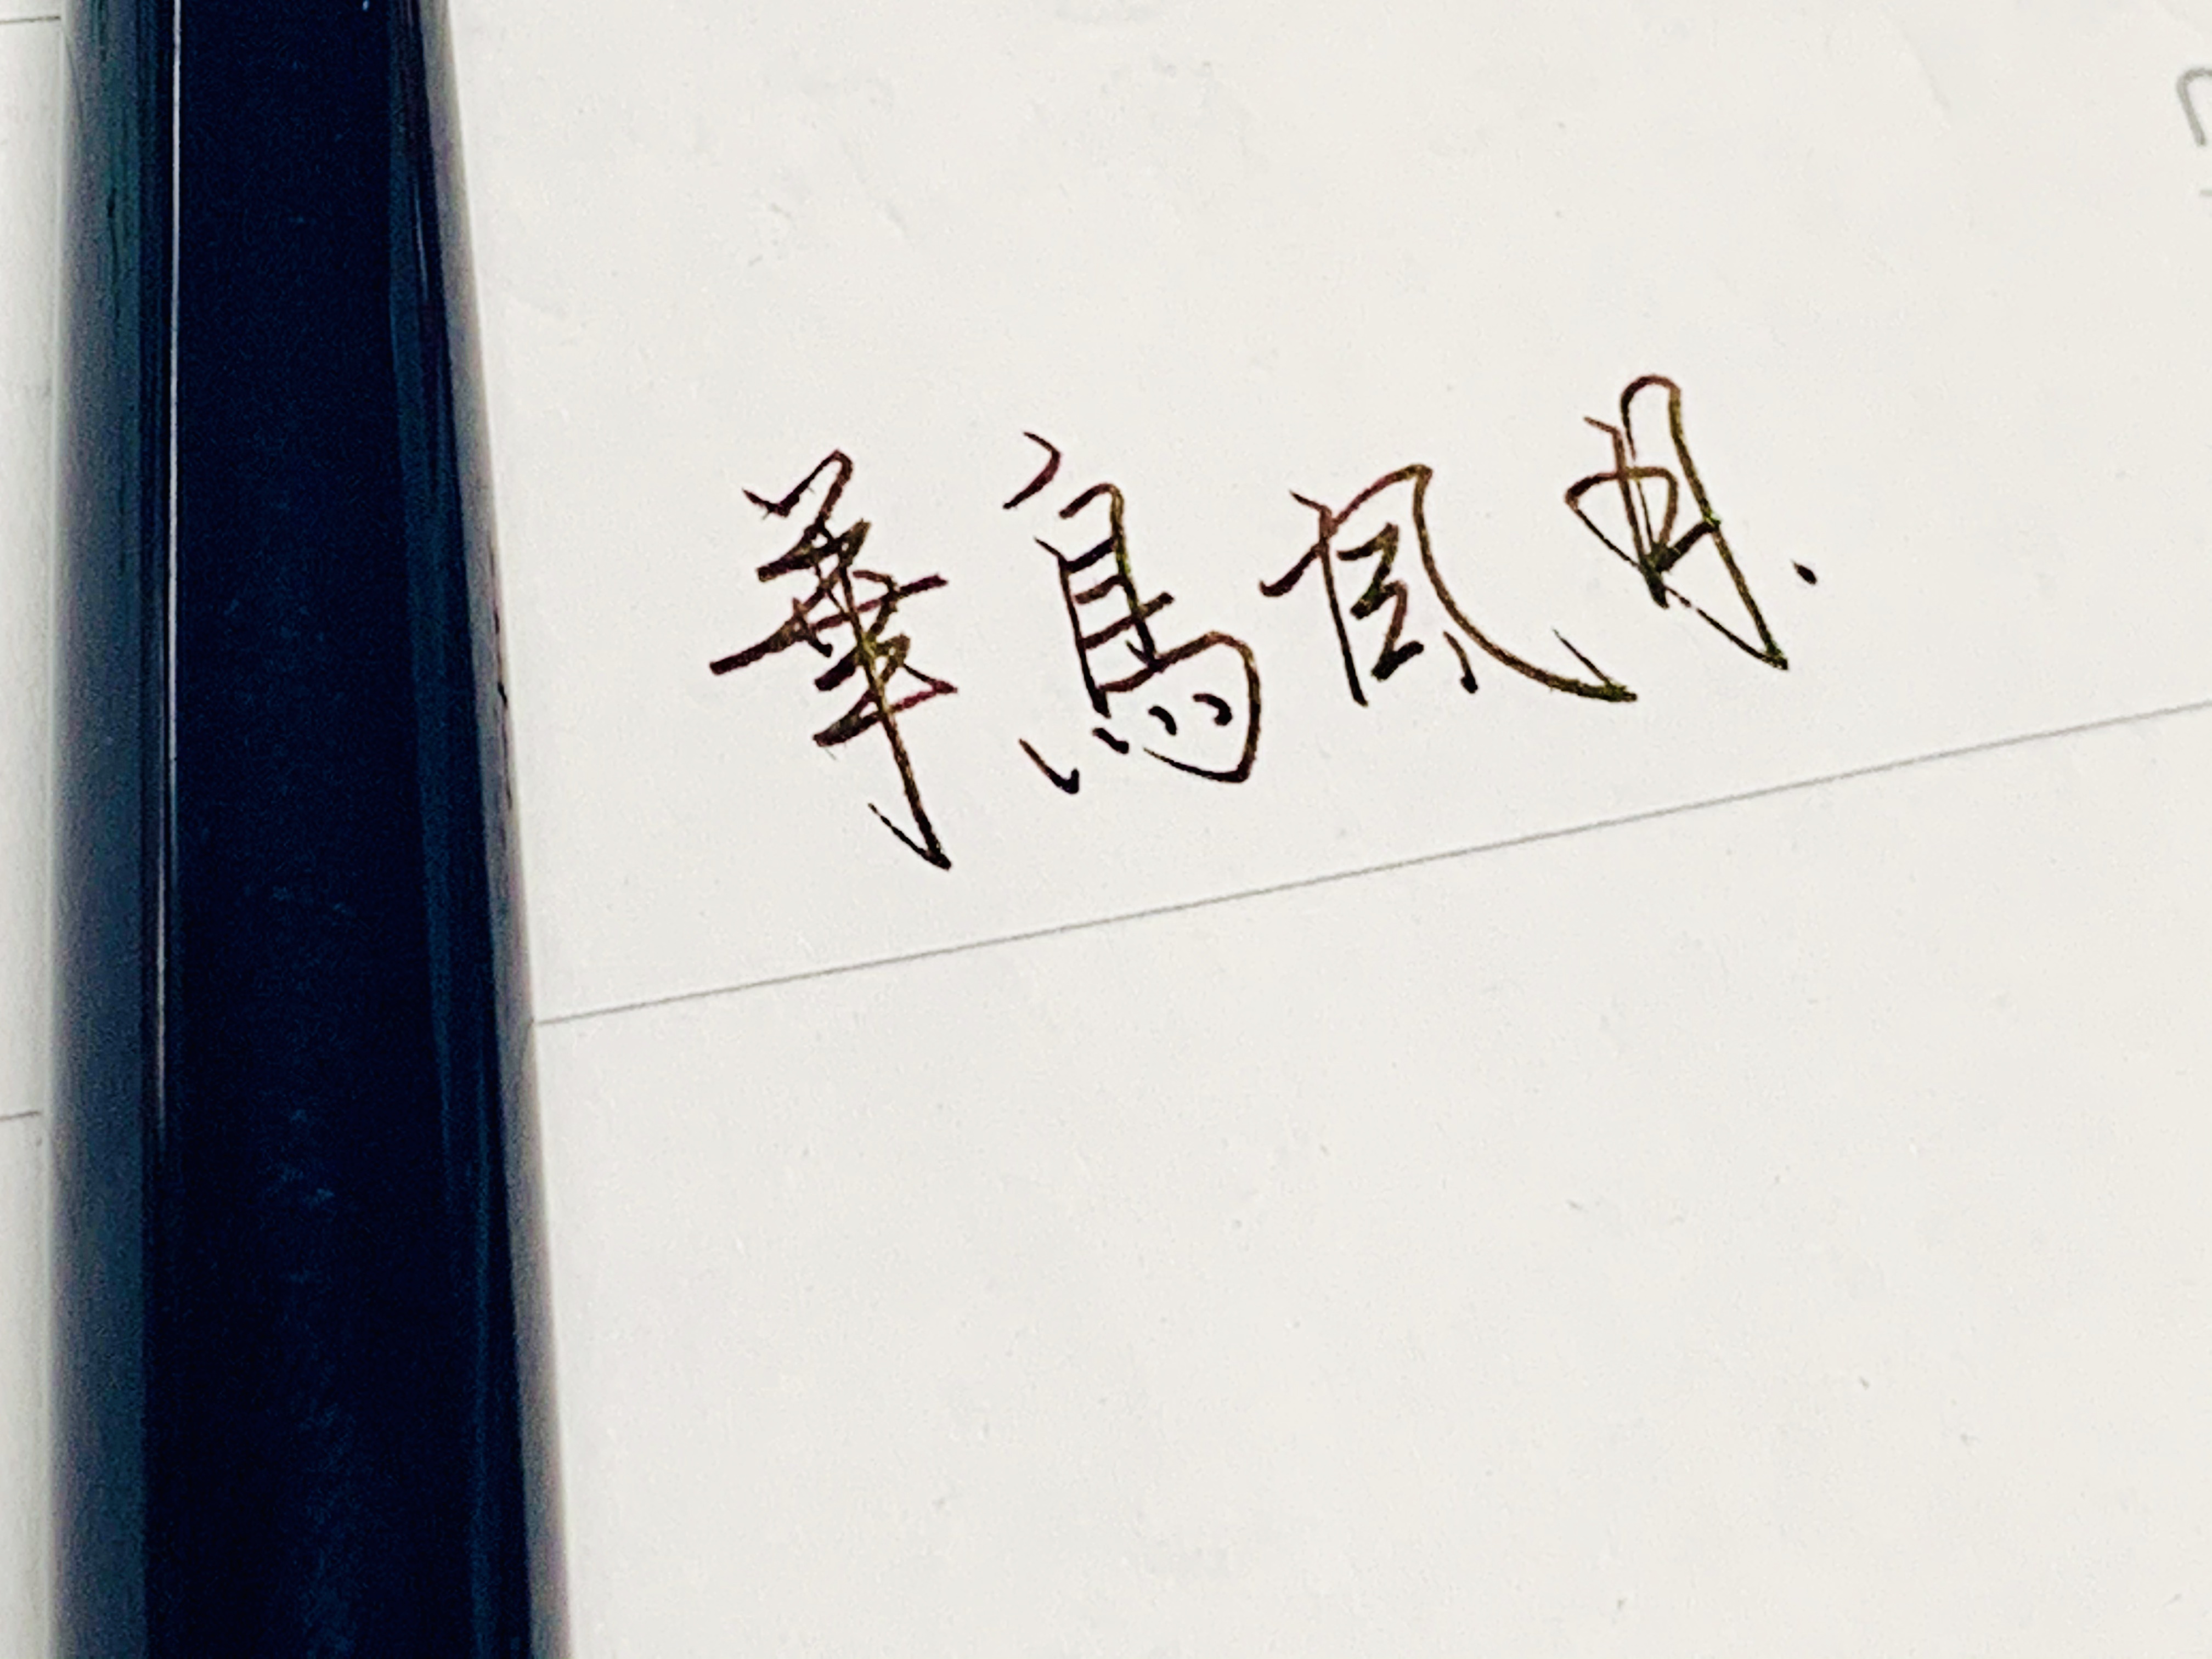 華鳥風月.